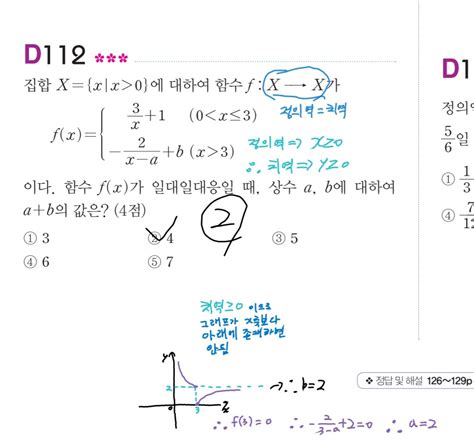 D112 ***
집합 X={x|x>0}에 대하여 함수 f : X → X가
정의역 = 치역
f(x)={ 3/x+1 (0<x≤3)
-2/(x-a)+b (x>3)
정의역 ⇒ x≥0
∴ 치역 ⇒ y≥0
이다. 함수 f(x)가 일대일대응일 때, 상수 a, b에 대하여
a+b의 값은? (4점)
2
① 3 ② 4 ③ 5
④ 6 ⑤ 7
치역≥0 이므로
그래프가 x축보다
아래에 존재하면
안됨
y
2
0 3 x
→ ∴ b=2
∴ f(3)=0 ∴ -2/(3-a)+2=0 ∴ a=2
❖ 정답 및 해설 126~129p
D1
정의역
5/6 일
① 1/3
④ 7/12